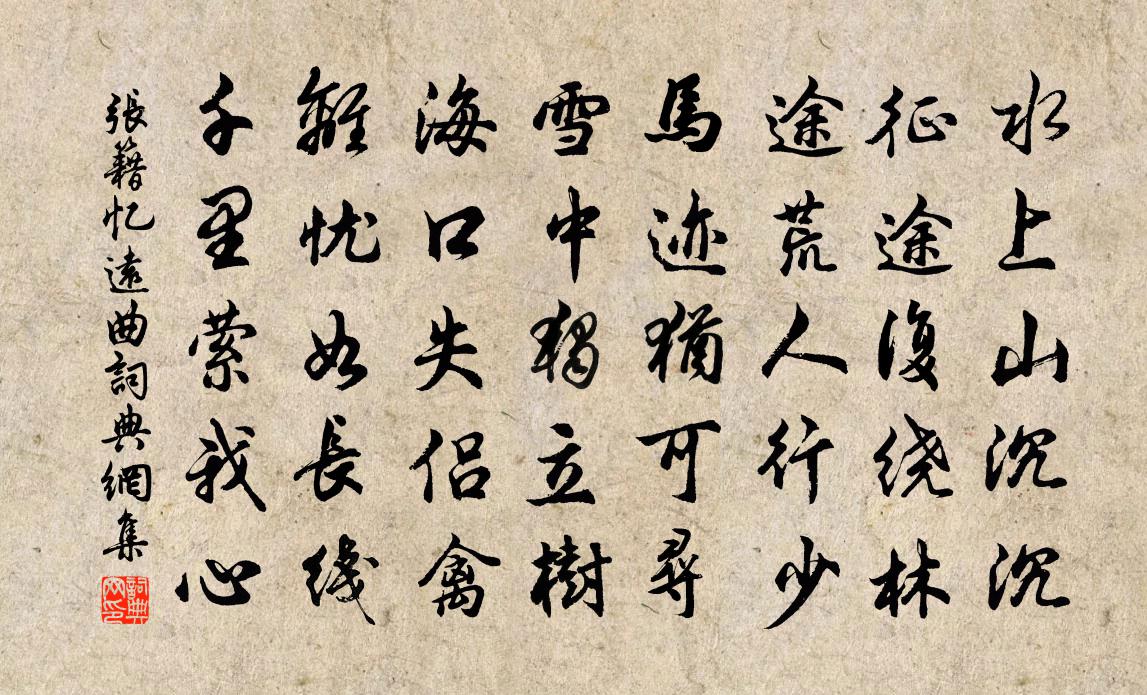 水上山沉沉
征途復绕林
途荒人行少
馬迹猶可尋
雪中獨立樹
海口失侣禽
離忧如長綫
千里萦我心
張籍忆遠曲詞典網集
詞典网印